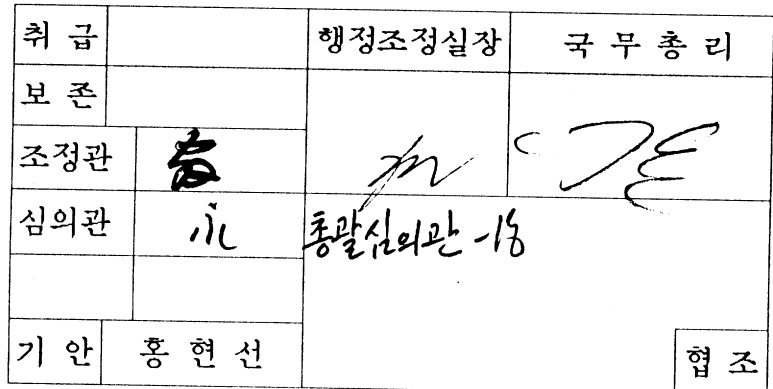 취 급 행정조정실장 국 무 총 리
보 존
조정관
심의관 총괄심의관
기 안 홍 현 선 협 조